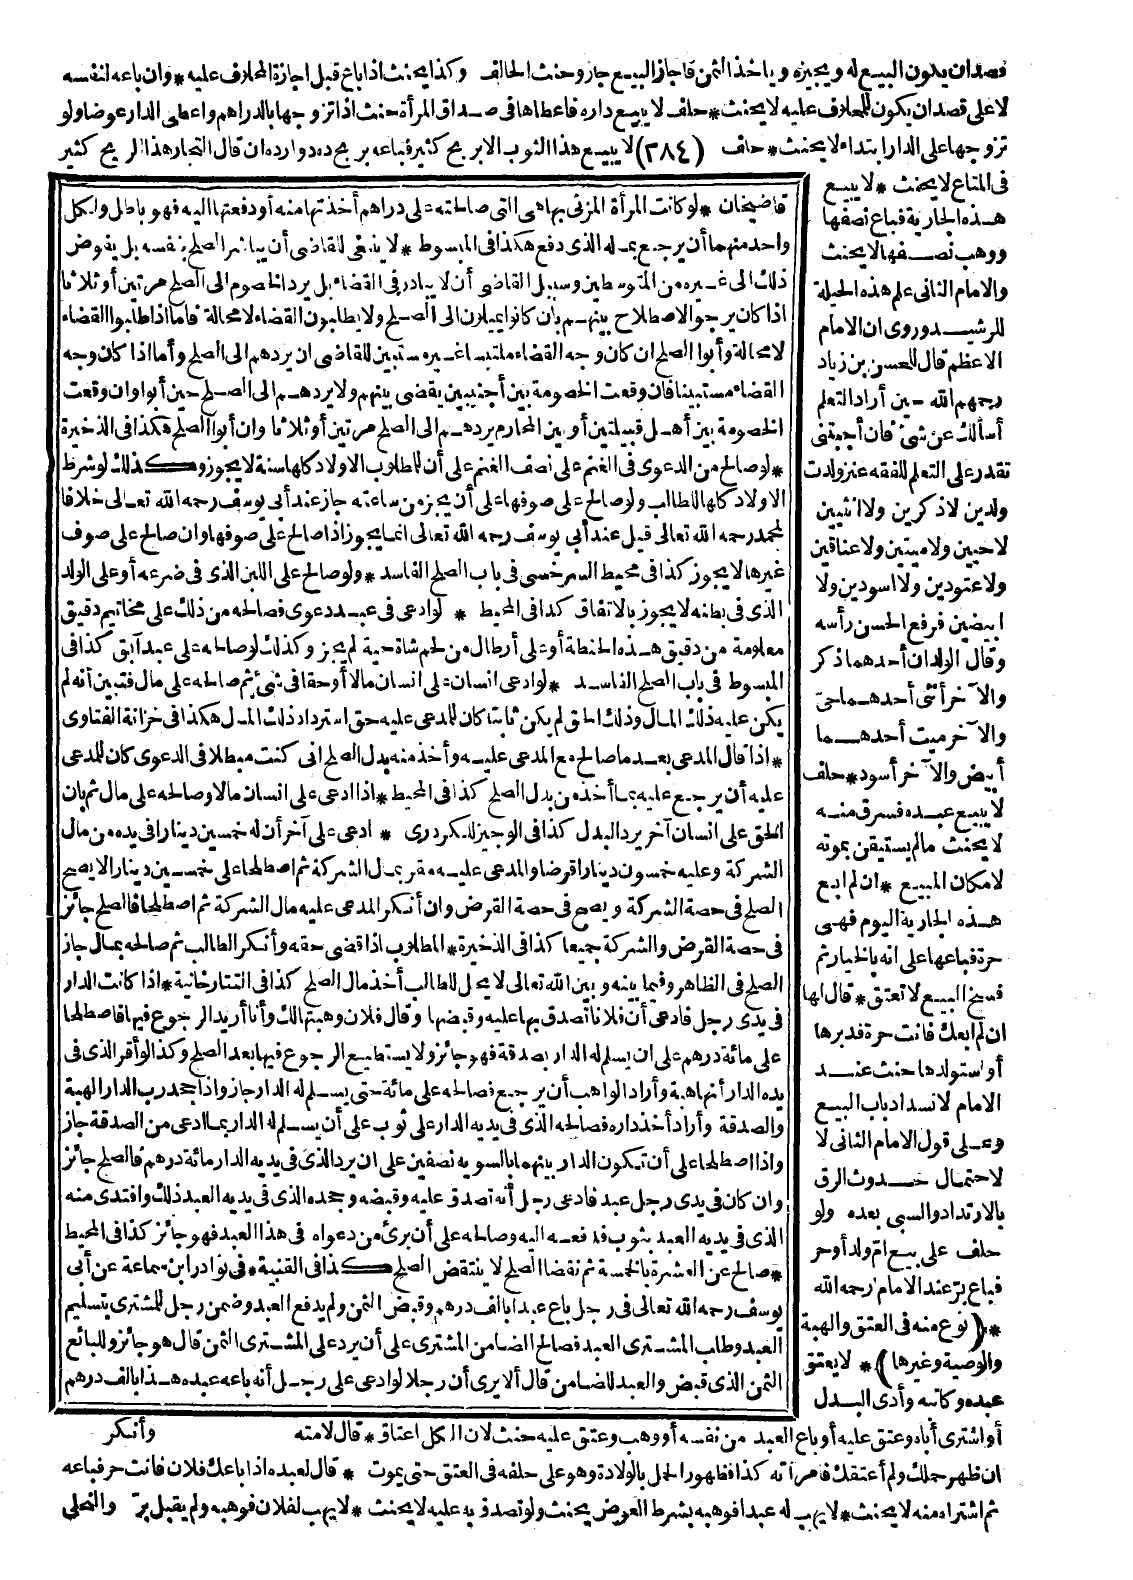 قصدان يكون البيع له ويجيزه ويأخذ الثمن فاجاز البيع جاز وحنث الحالف وكذا يحنث اذا باع قبل اجازة المحلوف عليه * وان باعه لنفسه
لا على قصد ان يكون للمحلوف عليه لا يحنث * حلف لا يبيع داره فاعطاها فى صداق المرأة حنث اذا تزوجها بالدراهم واعطى الدار عوضا ولو
تزوجها على الدار ابتداء لا يحنث * حلف (٢٨٤) لا يبيع هذا الثوب الا بربح كثير فباعه بربح ده دوازده ان قال التجار هذا الربح كثير
فى المتاع لا يحنث * لا يبيع
هذه الجارية فباع نصفها
ووهب نصفها لا يحنث
والامام الثانى علم هذه الحيلة
للرشيد وروى ان الامام
الاعظم قال للحسن بن زياد
رحمهم الله حين أراد التعلم
أسألك عن شئ فان أجبتنى
تقدر على التعلم للفقه عنز ولدت
ولدين لا ذكرين ولا انثيين
لا حيين ولا ميتين ولا عناقين
ولا عتودين ولا اسودين ولا
ابيضين فرفع الحسن رأسه
وقال الولدان أحدهما ذكر
والآخر أنثى أحدهما حى
والآخر ميت أحدهما
أبيض والآخر أسود * حلف
لا يبيع عبده فسرق منه
لا يحنث مالم يستيقن بموته
لامكان المبيع * ان لم ابع
هذه الجارية اليوم فهى
حرة فباعها على انه بالخيار ثم
فسخ البيع لا تعتق * قال لها
ان لم ابعك فانت حرة فدبرها
أو استولدها حنث عند
الامام لانسداد باب البيع
وعلى قول الامام الثانى لا
لاحتمال حدوث الرق
بالارتداد والسبى بعده ولو
حلف على بيع ام ولد أو حر
فباع بر عند الامام رحمه الله
* (نوع منه فى العتق والهبة
والوصية وغيرها) * لا يعتق
عبده وكاتبه وأدى البدل
أو اشترى أباه وعتق عليه أو باع العبد من نفسه أو وهب وعتق عليه حنث لان الكل اعتاق * قال لامته
ان ظهر حملك ولم أعتقك فامرأته كذا فظهور الحمل بالولادة وهو على حلفه فى العتق حتى يموت * قال لعبده اذا باعك فلان فانت حر فباعه
ثم اشتراه منه لا يحنث * لا يهب له عبدا فوهبه بشرط العوض يحنث ولو تصدق به عليه لا يحنث * لا يهب لفلان فوهبه ولم يقبل بر والنحلى
قاضيخان * لو كانت المرأة المزنى بها هى التى صالحته على دراهم أخذتها منه أو دفعتها اليه فهو باطل ولكل
واحد منهما أن يرجع بماله الذى دفع هكذا فى المبسوط * لا ينبغى للقاضى أن يباشر الصلح بنفسه بل يفوض
ذلك الى غيره من المتوسطين وسبيل القاضى أن لا يبادر فى القضاء بل يرد الخصوم الى الصلح مرتين أو ثلاثا
اذا كان يرجو الاصطلاح بينهم بان كانوا يميلون الى الصلح ولا يطلبون القضاء لا محالة فاما اذا طلبوا القضاء
لا محالة وأبوا الصلح ان كان وجه القضاء ملتبسا غير مستبين للقاضى ان يردهم الى الصلح وأما اذا كان وجه
القضاء مستبينا فان وقعت الخصومة بين أجنبيين يقضى بينهم ولا يردهم الى الصلح حين أبوا وان وقعت
الخصومة بين أهل قبيلتين أو بين المحارم يردهم الى الصلح مرتين أو ثلاثا وان أبوا الصلح هكذا فى الذخيرة
* لو صالح من الدعوى فى الغنم على نصف الغنم على أن للمطلوب الاولاد كلها سنة لا يجوز وكذلك لو شرط
الاولاد كلها للطالب ولو صالح على صوفها على أن يجزه من ساعته جاز عند أبى يوسف رحمه الله تعالى خلافا
لمحمد رحمه الله تعالى قيل عند أبى يوسف رحمه الله تعالى انما يجوز اذا صالح على صوفها وان صالح على صوف
غيرها لا يجوز كذا فى محيط السرخسى فى باب الصلح الفاسد * ولو صالح على اللبن الذى فى ضرعه أو على الولد
الذى فى بطنه لا يجوز بالاتفاق كذا فى المحيط * لو ادعى فى عبد دعوى فصالحه من ذلك على مخاتيم دقيق
معلومة من دقيق هذه الحنطة أو على أرطال من لحم شاة حية لم يجز وكذلك لو صالحه على عبد آبق كذا فى
المبسوط فى باب الصلح الفاسد * لو ادعى انسان على انسان مالا أو حقا فى شئ ثم صالحه على مال فتبين أنه لم
يكن عليه ذلك المال وذلك الحق لم يكن ثابتا كان للمدعى عليه حق استرداد ذلك المال هكذا فى خزانة الفتاوى
* اذا قال المدعى بعد ما صالح مع المدعى عليه وأخذ منه بدل الصلح انى كنت مبطلا فى الدعوى كان للمدعى
عليه أن يرجع عليه بما أخذ من بدل الصلح كذا فى المحيط * اذا ادعى على انسان مالا وصالحه على مال ثم بان
الحق على انسان آخر يرد البدل كذا فى الوجيز للكردرى * ادعى على آخر أن له خمسين دينارا فى يده من مال
الشركة وعليه خمسون دينارا قرضا والمدعى عليه مقر بمال الشركة ثم اصطلحا على خمسين دينارا لا يصح
الصلح فى حصة الشركة ويصح فى حصة القرض وان أنكر المدعى عليه مال الشركة ثم اصطلحا فالصلح جائز
فى حصة القرض والشركة جميعا كذا فى الذخيرة * المطلوب اذا قضى حقه وأنكر الطالب ثم صالحه بمال جاز
الصلح فى الظاهر وفيما بينه وبين الله تعالى لا يحل للطالب أخذ مال الصلح كذا فى التتارخانية * اذا كانت الدار
فى يدى رجل فادعى أن فلانا تصدق بها عليه وقبضها وقال فلان وهبتها لك وأنا أريد الرجوع فيها فاصطلحا
على مائة درهم على ان يسلم له الدار بصدقة فهو جائز ولا يستطيع الرجوع فيها بعد الصلح وكذا لو أقر الذى فى
يده الدار أنها هبة وأراد الواهب أن يرجع فصالحه على مائة حتى يسلم له الدار جاز واذا جحد رب الدار الهبة
والصدقة وأراد أخذ داره فصالحه الذى فى يديه الدار على ثوب على أن يسلم له الدار بما ادعى من الصدقة جاز
واذا اصطلحا على أن تكون الدار بينهما بالسوية نصفين على ان يرد الذى فى يديه الدار مائة درهم فالصلح جائز
وان كان فى يدى رجل عبد فادعى رجل أنه تصدق عليه وقبضه وجحده الذى فى يديه العبد ذلك وافتدى منه
الذى فى يديه العبد بثوب فدفعه اليه وصالحه على أن برئ من دعواه فى هذا العبد فهو جائز كذا فى المحيط
* صالح عن العشرة بالخمسة ثم نقضا الصلح لا ينتقض الصلح كذا فى القنية * فى نوادر ابن سماعة عن أبى
يوسف رحمه الله تعالى فى رجل باع عبدا بالف درهم وقبض الثمن ولم يدفع العبد وضمن رجل للمشترى بتسليم
العبد وطلب المشترى العبد فصالح الضامن المشترى على أن يرد على المشترى الثمن قال هو جائز وللبائع
الثمن الذى قبض والعبد للضامن قال ألا يرى أن رجلا لو ادعى على رجل أنه باعه عبده هذا بالف درهم
وأنكر